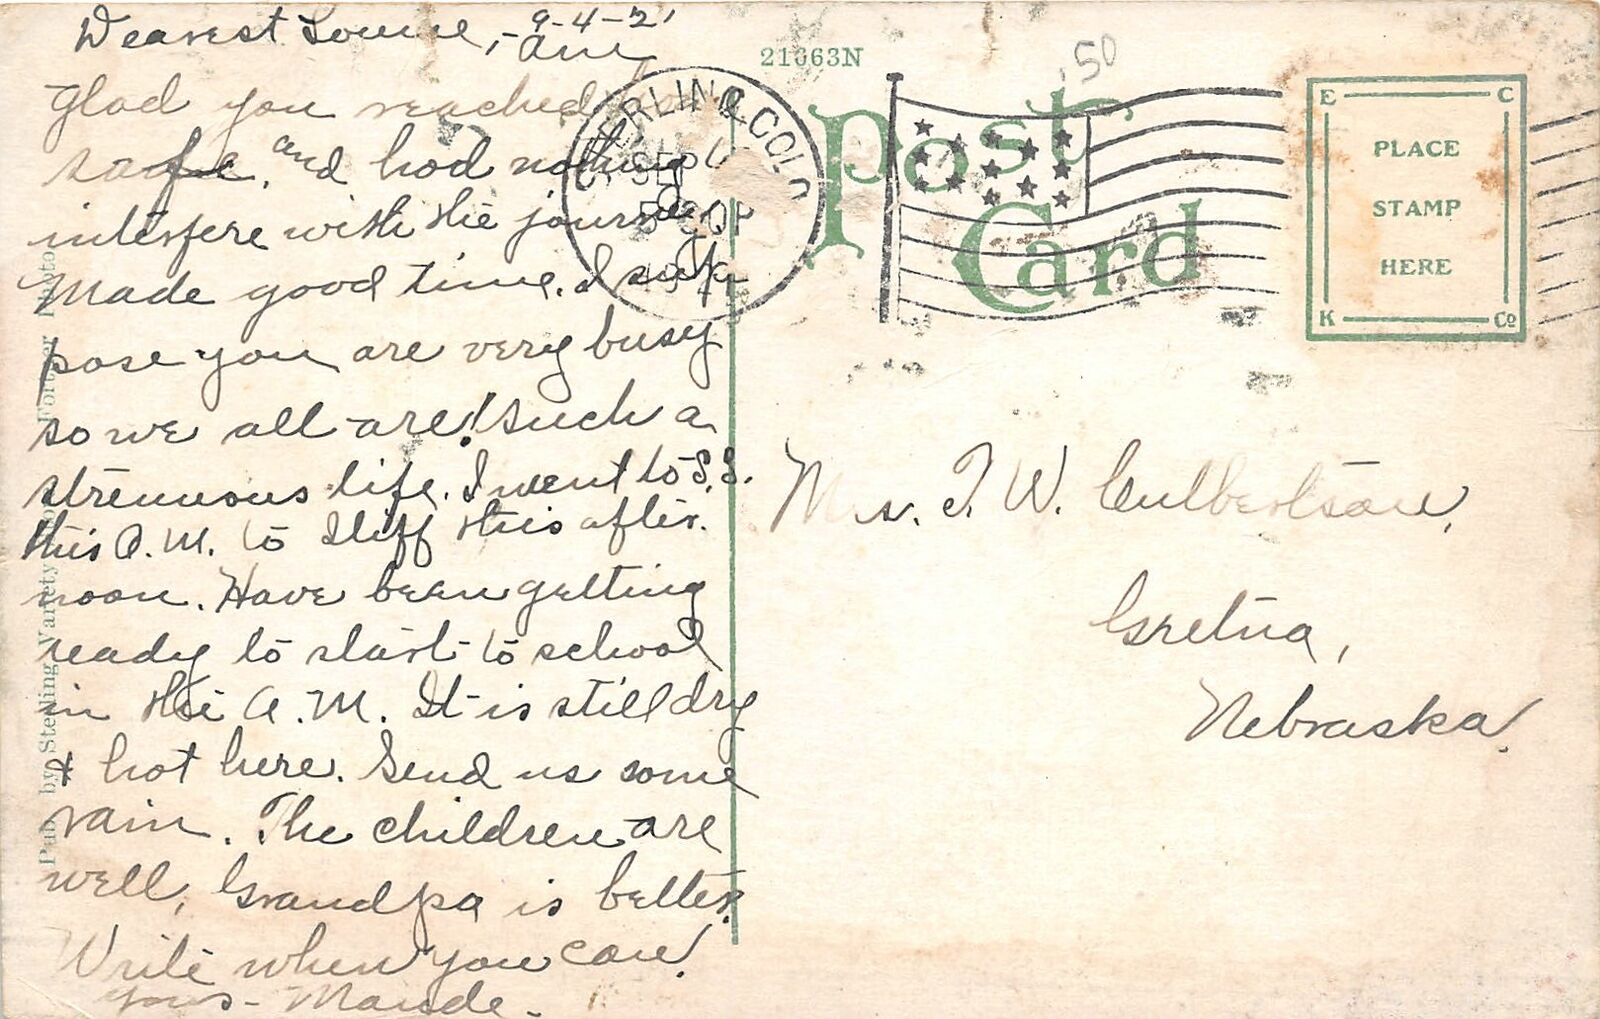 9-4-21
Dearest Louise,- Am
glad you reached
safe, and had nothing
interfere with the journey.
Made good time. I sup-
pose you are very busy
so we all are! Such a
strenuous life. I went to S.S.
this A.M. to Iliff this after-
noon. Have been getting
ready to start to school
in the A.M. It is still dry
& hot here. Send us some
rain. The children are
well, Grandpa is better.
Write when you can!
Yours- Maude.
Pub. by Sterling Variety
21663N
Post
Card
.50
STERLING, COLO.
SEP
5 30 P
E C
PLACE
STAMP
HERE
K Co
Mrs. T. W. Culbertson,
Gretna,
Nebraska.